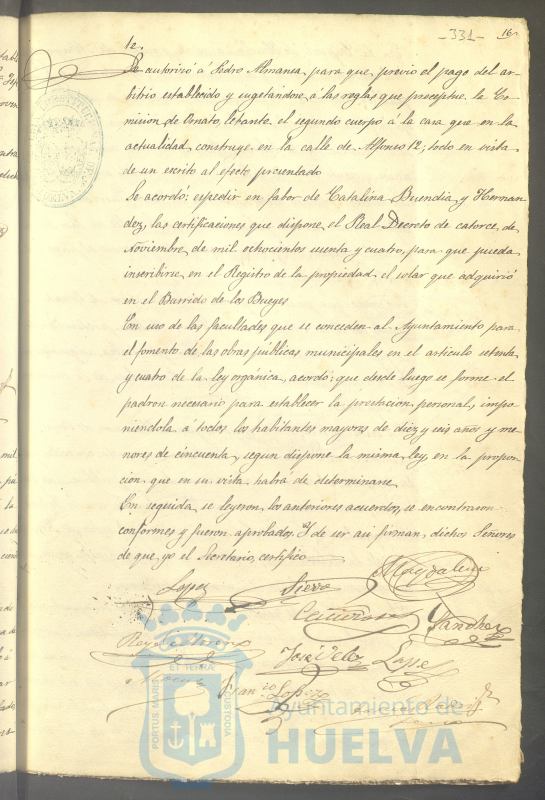 -331-
16
12.
Se autorizó á Pedro Almansa, para que, previo el pago del ar-
bitrio establecido y sugetandose, á las reglas que preceptue, la Co-
mision de Ornato, levante, el segundo cuerpo á la casa que en la
actualidad, construye, en la calle de Alfonso 12; todo en vista
de un escrito al efecto presentado
Se acordó: espedir en fabor de Catalina Buendia y Hernan
dez, las certificaciones que dispone, el Real Decreto de catorce, de
Noviembre, de mil ochocientos sesenta y cuatro, para que pueda
inscribirse, en el Registro de la propiedad, el solar que adquirió
en el Barrido de los Bueyes
En uso de las facultades que se conceden al Ayuntamiento para
el fomento de las obras públicas municipales en el articulo setenta
y cuatro de la ley orgánica, acordó: que desde luego se forme el
padron necesario para establecer la prestacion personal, impo
niendola á todos los habitantes mayores de diez y seis años y me
nores de cincuenta, segun dispone la misma ley, en la propor
cion que en su vista habrá de determinarse
En seguida se leyeron los anteriores acuerdos, se encontraron
conformes y fueron aprobados. Y de ser asi firman, dichos Señores
de que, yo el Secretario, certifico
Lopez
Sierra
Sanchez
José Vela
Lopez
Lopez
PORTUS MARIS
ET TERRÆ
CUSTODIA
Ayuntamiento de
HUELVA